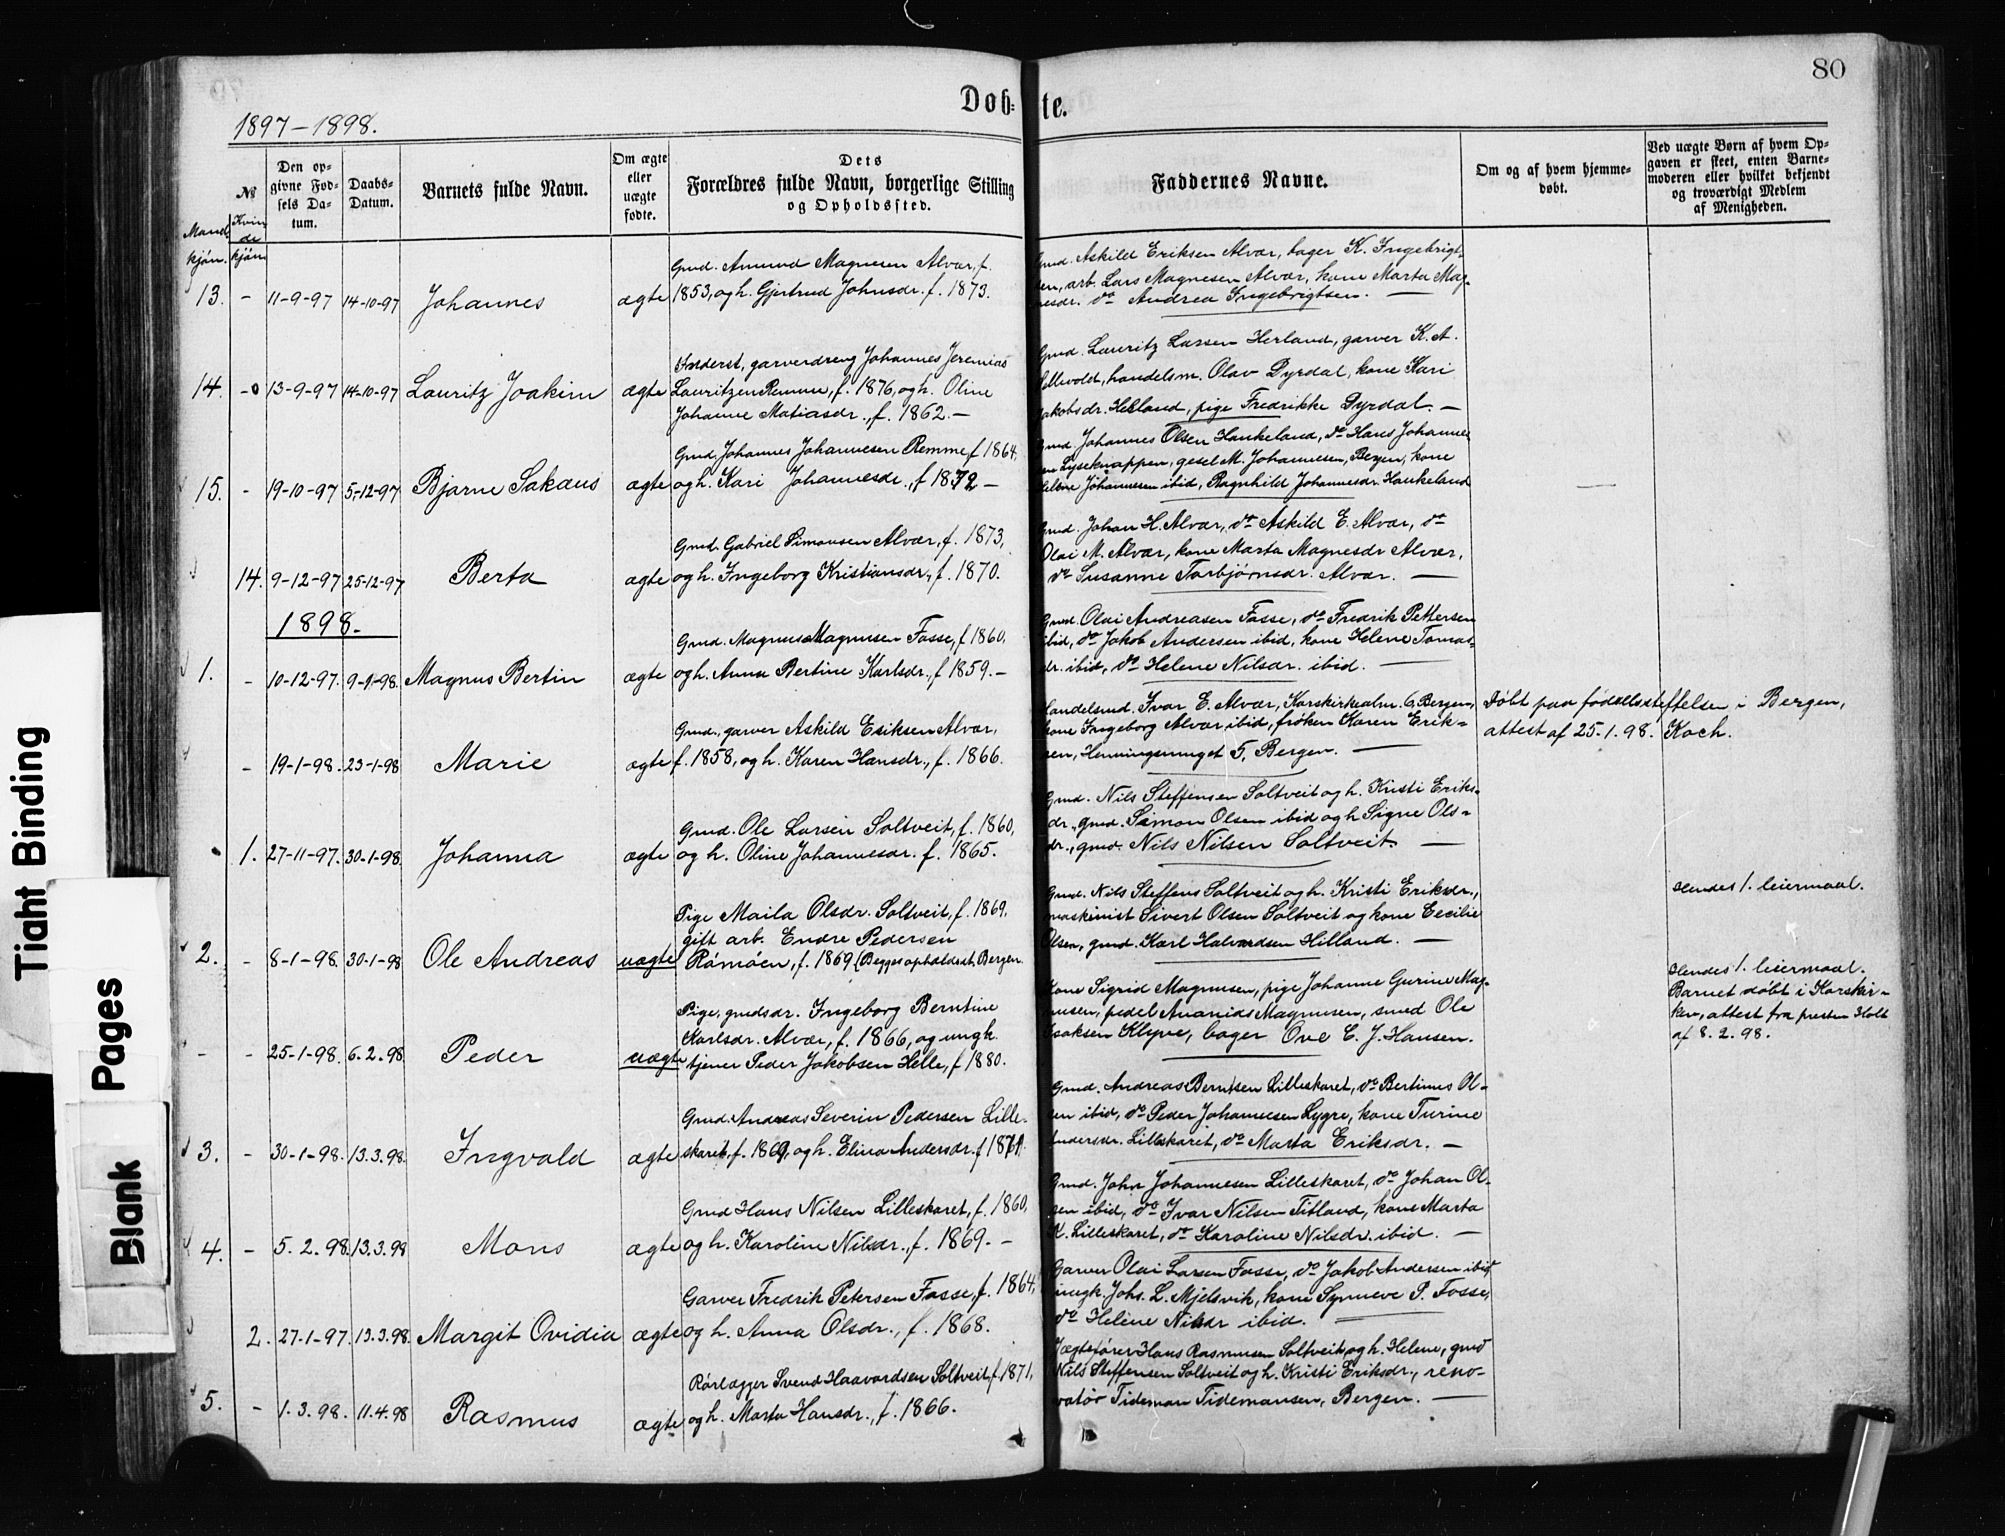 80
Døb-
te.
1897-1898.
№
Mand-
kjøn.
Kvin
de
kjøn
Den op-
givne Fød-
sels Da-
tum.
Daabs-
Datum.
Barnets fulde Navn.
Om ægte
eller
uægte
fødte.
Dets
Forældres fulde Navn, borgerlige Stilling
og Opholdssted.
Faddernes Navne.
Om og af hvem hjemme-
døbt.
Ved uægte Børn af hvem Op-
gaven er skeet, enten Barne-
moderen eller hvilket bekjendt
og troværdigt Medlem
af Menigheden.
Gmd. Amund Magnesen Alvær, f.
13. - 11-9-97 14-10-97 Johannes ægte 1853, og h. Gjertrud Johnsdr. f. 1873.
Gmd. Askild Eriksen Alvær, bager K. Ingebrigt-
sen, arb. Lars Magnesen Alvær, kone Marta Mag-
nesdr. do Andrea Ingebrigtsen. —
garverdreng Johannes Jeremias
14. - 13-9-97 14-10-97 Lauritz Joakim ægte Lauritzen Remme, f. 1876, og h. Oline
Johanne Matiasdr., f. 1862. —
Gmd. Lauritz Larsen Herland, garver K. A.
handelsm. Olav Dyrdal, kone Kari
Jakobsdr. Herland, pige Fredrikke Dyrdal. —
Gmd. Johannes Johannesen Remme f 1864,
15. - 19-10-97 5-12-97 Bjarne Sakaus ægte og h. Kari Johannesdr., f 1872 —
Gmd. Johannes Olsen Haukeland, do Hans Johannes-
sen Lyseknappen, gesel M. Johannesen, Bergen, kone
Helene Johannesen ibid, Ragnhild Johannesdr. Haukeland
—
Gmd. Gabriel Simonsen Alvær, f. 1873,
14. 9-12-97 25-12-97 Berta ægte og h. Ingeborg Kristiansdr., f. 1870.
Gmd. Johan H. Alvær, do Askild E. Alvær, do
Olai M. Alvær, kone Marta Magnesdr Alvær,
do Susanne Torbjørnsdr. Alvær. —
1898.
Gmd. Magnus Magnusen Fosse, f 1860,
1. - 10-12-97. 9-1-98. Magnus Bertin ægte og h. Anna Bertine Karlsdr., f 1859. —
Gmd. Olai Andreasen Fosse, do Fredrik Pettersen
ibid, do Jakob Andersen ibid, kone Helene Tomas-
dr. ibid, do Helene Nilsdr. ibid. —
Gmd., garver Askild Eriksen Alvær,
- 19-1-98. 23-1-98 Marie ægte f. 1858, og h. Karen Hansdr., f. 1866.
Handelsmd. Ivar E. Alvær, Korskirkealm. 6, Bergen,
kone Ingeborg Alvær ibid, frøken Karen Erik-
sen, Henningsmuget 5, Bergen. —
Døbt paa fødselsstiftelsen i Bergen,
attest af 25-1.98. Koch.
Gmd. Ole Larsen Soltveit, f. 1860,
1. 27-11-97. 30-1-98. Johanna ægte og h. Oline Johannesdr. f. 1865.
Gmd. Nils Steffensen Soltveit og h. Kristi Eriks-
dr., gmd. Simon Olsen ibid og h Signe Ols-
dr., gmd. Nils Nilsen Soltveit. —
Pige Maila Olsdr. Soltveit, f. 1869,
gift arb. Endre Pedersen
2. - 8-1-98. 30-1-98 Ole Andreas uægte Rømøen, f. 1869 (Begges opholdsst. Bergen.
Gmd. Nils Steffens Soltveit og h. Kristi Eriksdr.,
maskinist Sivert Olsen Soltveit og kone Cecilie
Olsen, gmd. Karl Halvardsen Hilland. —
Hendes 1. leiermaal.
Pige, gmdsdr. Ingeborg Berntine
Karlsdr. Alvær, f. 1866, og ungk.
- - 25-1-98. 6.2.98 Peder uægte tjener Peder Jakobsen Helle, f 1880.
Kone Sigrid Magnusen, pige Johanne Gurine Mag-
nusen, pedel Ananias Magnusen, smed Ole
Isaksen Klyve, bager Ove C. J. Hansen.
Hendes 1. leiermaal.
Barnet døbt i Korskir-
ken, attest fra presten Holt
af 8.2.98.
Gmd. Andreas Severin Pedersen Lille-
3. - 30-1-98. 13.3.98. Ingvald ægte skaret, f. 1869, og h. Elina Andersdr. f 1871.
Gmd. Andreas Berntsen Lilleskaret, do Bertinus Ol-
sen ibid, do Peder Johannesen Lygre, kone Turine
Andersdr. Lilleskaret, do Marta Eriksdr. —
Gmd Hans Nilsen Lilleskaret, f. 1860,
4. - 5.2.98. 13.3.98 Mons ægte og h. Karoline Nilsdr., f. 1869. —
Gmd. John Johannesen Lilleskaret, do Johan Ol-
sen ibid, do Ivar Nilsen Titland, kone Marta
K. Lilleskaret, do Karoline Nilsdr. ibid. —
Garver Fredrik Petersen Fosse, f. 1864,
2. 27-1-97. 13.3.98. Margit Ovidia ægte og h. Anna Olsdr., f. 1868.
Garver Olai Larsen Fosse, do Jakob Andersen ibid
ungk. Johs. L. Mjelsvik, kone Synneve P. Fosse,
do Helene Nilsdr ibid. —
Rørlægger Svend Haavardsen Soltveit, f 1871,
5. - 1.3.98. 11.4.98 Rasmus ægte og h. Marta Hansdr., f. 1866.
Jægtefører Hans Rasmusen Soltveit og h. Helene, gmd
Nils Steffensen Soltveit og h. Kristi Eriksdr., reno-
vatør Tideman Tidemansen, Bergen. —
Tiaht Binding
Blank Pages